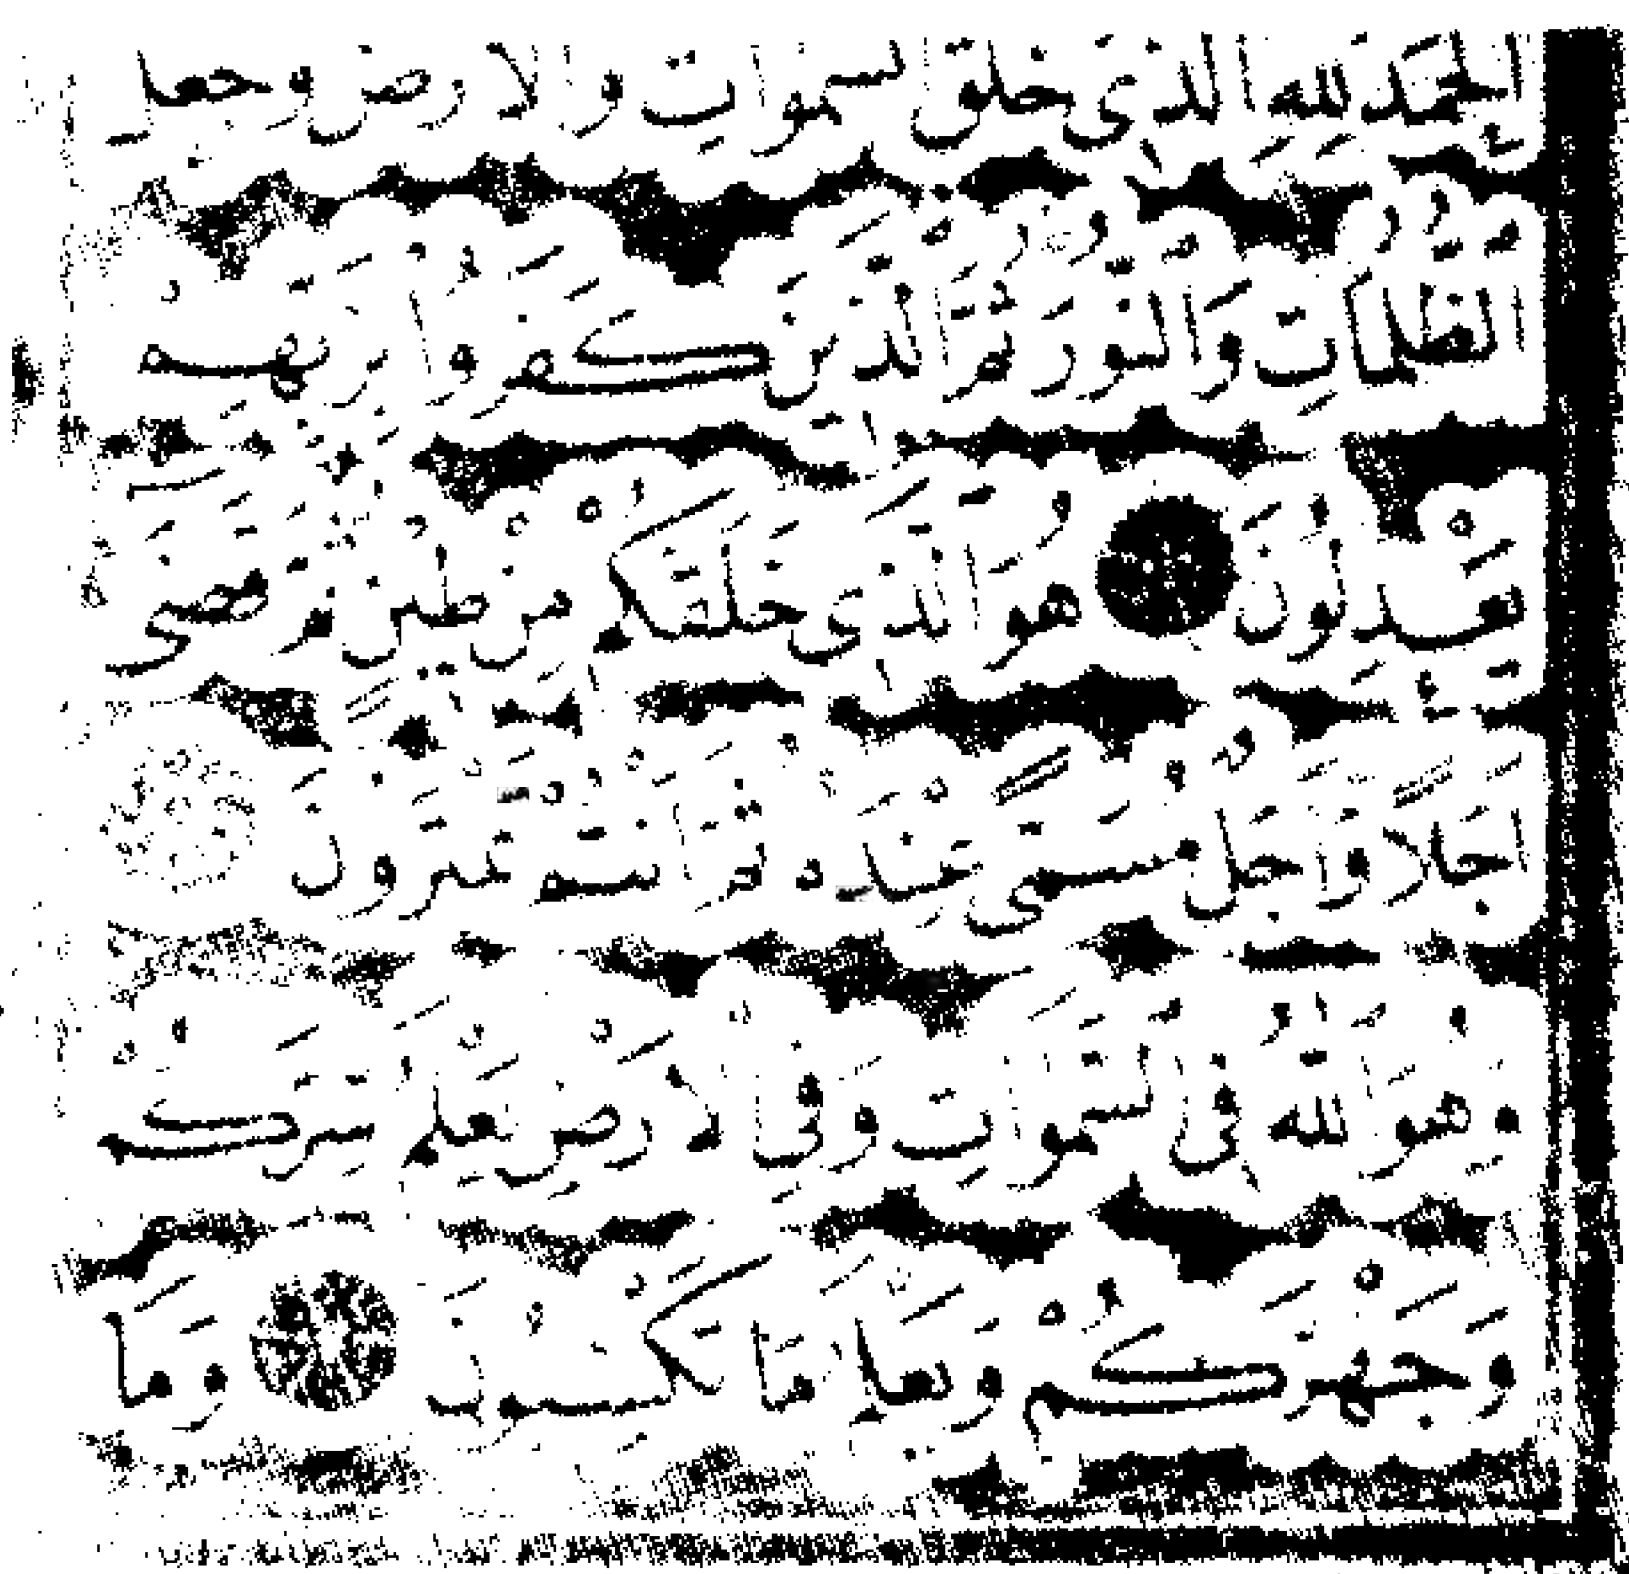 الحمد لله الذي خلق السموات والارض وجعل
الظُّلُمَاتِ وَالنُّورَ ثُمَّ الَّذِينَ كَفَرُوا بِرَبِّهِمْ
يَعْدِلُونَ هُوَ الَّذِي خَلَقَكُمْ مِنْ طِينٍ ثُمَّ قَضَى
اَجَلًا وَاَجَلٌ مُسَمًّى عِنْدَهُ ثُمَّ اَنْتُمْ تَمْتَرُونَ
وَهُوَ اللّٰهُ فِي السَّمٰوَاتِ وَفِي الْاَرْضِ يَعْلَمُ سِرَّكُمْ
وَجَهْرَكُمْ وَيَعْلَمُ مَا تَكْسِبُونَ وَمَا